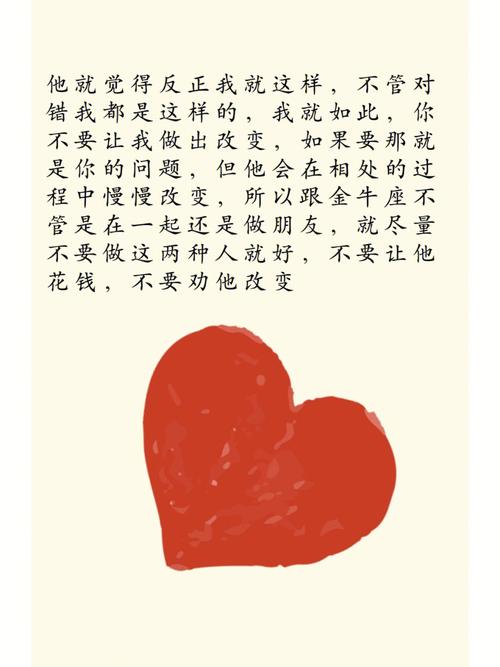 他就觉得反正我就这样，不管对
错我都是这样的，我就如此，你
不要让我做出改变，如果要那就
是你的问题，但他会在相处的过
程中慢慢改变，所以跟金牛座不
管是在一起还是做朋友，就尽量
不要做这两种人就好，不要让他
花钱，不要劝他改变